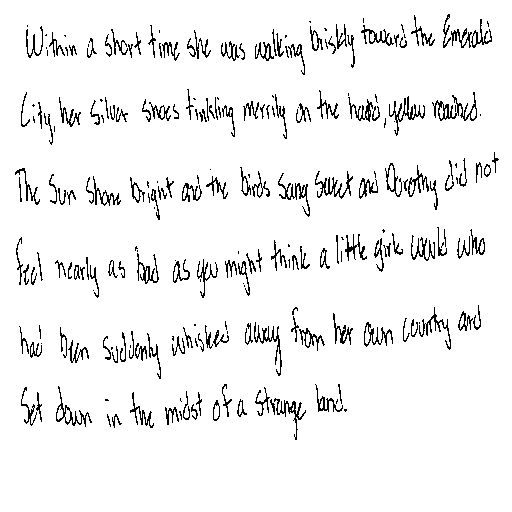 Within a short time she was walking briskly toward the Emerald
City, her Silver Shoes tinkling merrily on the hard, yellow roadbed.
The Sun Shone bright and the birds Sang Sweet and Dorothy did not
feel nearly as bad as you might think a little girl would who
had been suddenly whisked away from her own country and
Set down in the midst of a strange land.